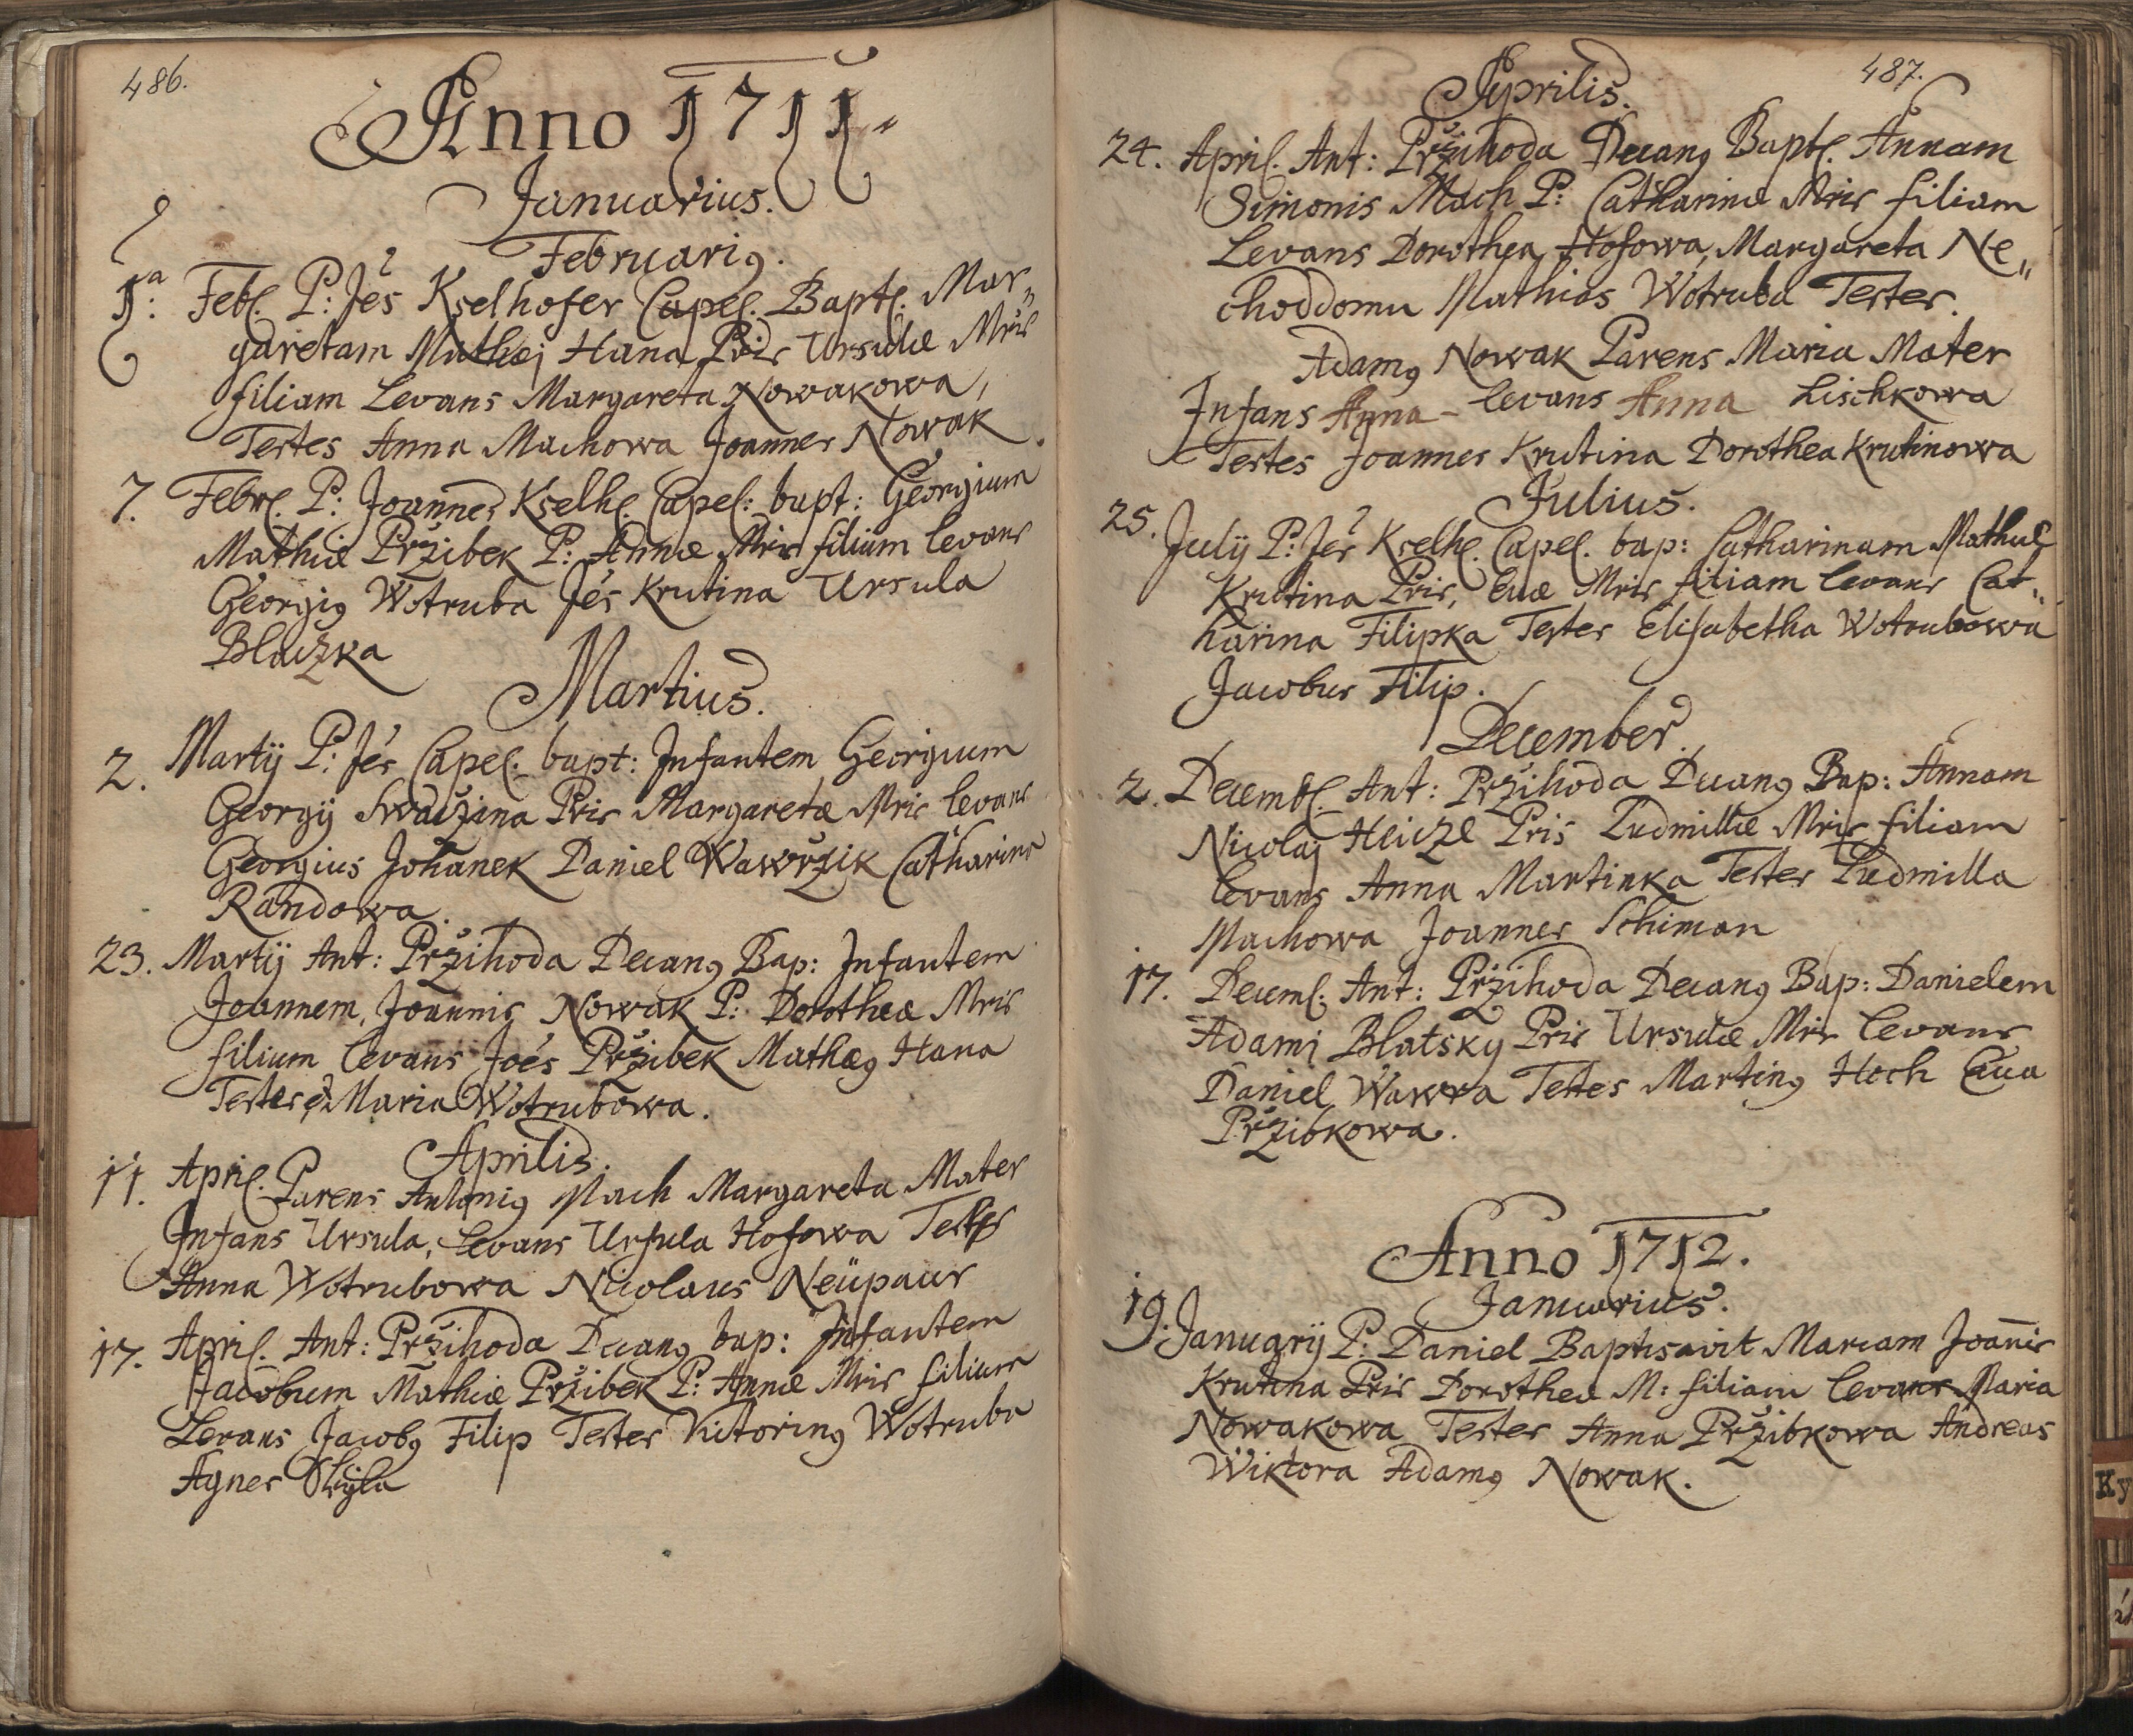 486.
Anno 1711.
Januarius.
Februari9.
1a. Feb. P: Jes Kselhofer Capel. Bapt. Mar„
garetam Mathæj Hana Pris Ursulæ Mris
filiam Levans Margareta Nowakowa,
Testes Anna Machowa Joannes Nowak.
7. Febr. P: Joannes Kselh. Capel: bapt: Georgium
Mathiæ Pržibek P: Annæ Mris filium levans
Georgi9 Wotruba Jes Krutina Ursula
Blaczka
Martius.
2. Martij P: Jes Capel. bapt: Infantem Georgium
Georgij Swaczina Pris Margaretæ Mris levans
Georgius Johanek Daniel Wawržik Catharina
Randowa.
23. Martij Ant: Pržihoda Decan9 Bap: Infantem
Joannem, Joannis Nowak P: Dorotheæ Mris
filium levans Joes Pržibek Mathæ9 Hana
Testes Maria Wotrubowa.
Aprilis.
11. April. Parens Antoni9 Mach Margareta Mater
Infans Ursula, Levans Ursula Hofowa Testes
Anna Wotrubowa Nicolaus Neüpaur
17. April. Ant: Pržihoda Decan9 bap: Infantem
Jacobum Mathiæ Pržibek P: Annæ Mris filium
Levans Jacob9 Filip Testes Victorin9 Wotruba
Agnes
487.
Aprilis.
24. April. Ant: Pržihoda Decan9 Bapt. Annam
Simonis Mach P: Catharinæ Mris filiam
Levans Dorothea Hofowa, Margareta Ne„
choddomu Mathias Wotruba Testes.
Adam9 Nowak Parens Maria Mater
Infans Anna - levans Anna Lischkowa
Testes Joannes Krutina Dorothea Krutinowa
Julius.
25. Julij P: Jes Kselh. Capel. bap: Catharinam Mathiæ
Krutina Pris, Evæ Mris filiam levans Cat„
harina Filipka Testes Elisabetha Wotrubowa
Jacobus Filip.
December.
2. Decemb. Ant: Pržihoda Decan9 Bap: Annam
Nicolaj Heicze Pris Ludmillæ Mris filiam
levans Anna Martinka Testes Ludmilla
Machowa Joannes Schiman
17. Decem: Ant: Pržihoda Decan9 Bap: Danielem
Adami Blatsky Pris Ursulæ Mris levans
Daniel Wawra Testes Martin9 Hoch Eva
Pržibkowa.
Anno 1712.
Januarius.
19. Januarij P: Daniel Baptisavit Mariam Joannis
Krutina Pris Dorothea M: filiam levans Maria
Nowakowa Testes Anna Pržibkowa Andreas
Wiktora Adam9 Nowak.
Ky